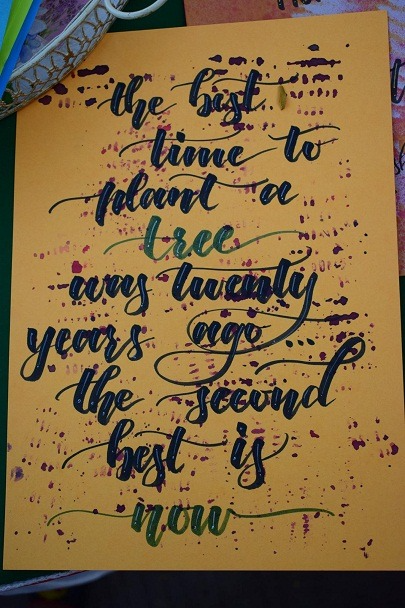 the best
time to
plant a
tree
was twenty
years ago...
the second
best is
now